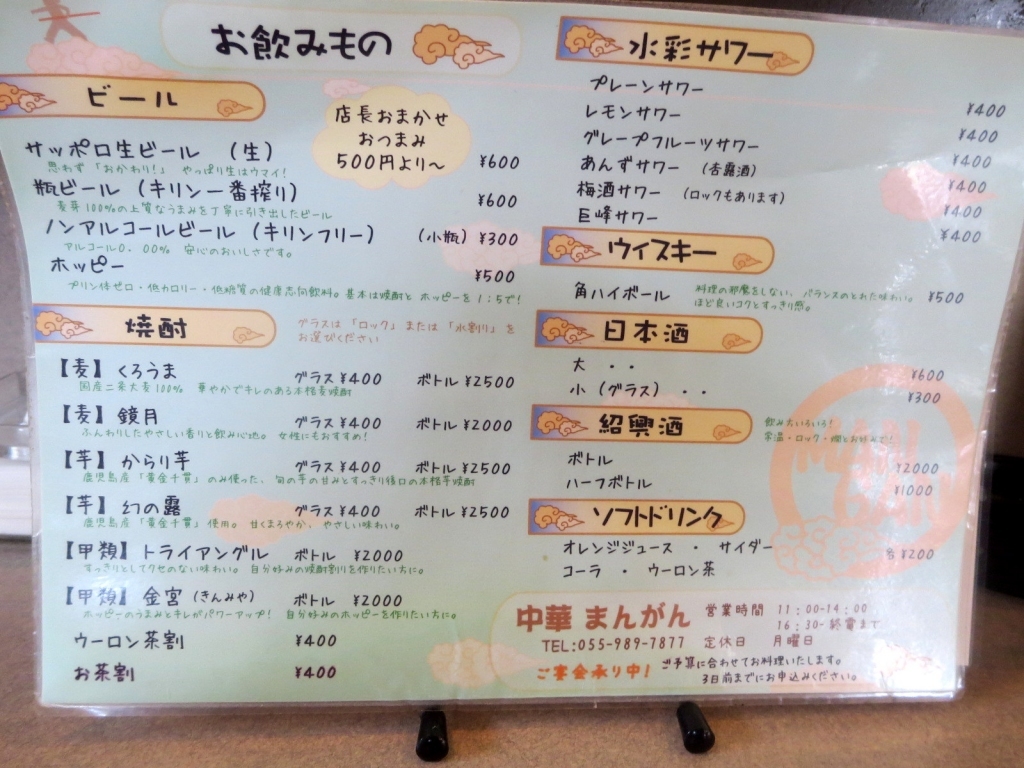 お飲みもの
ビール
店長おまかせ
おつまみ
500円より～
サッポロ生ビール (生) ¥600
思わず「おかわり!」 やっぱり生はウマイ!
瓶ビール (キリン一番搾り) ¥600
麦芽100%の上質なうまみを丁寧に引き出したビール
ノンアルコールビール (キリンフリー) (小瓶) ¥300
アルコール0.00% 安心のおいしさです。
ホッピー ¥500
プリン体ゼロ・低カロリー・低糖質の健康志向飲料。基本は焼酎と ホッピーを 1:5で!
焼酎
グラスは「ロック」または「水割り」を
お選びください
【麦】くろうま グラス ¥400 ボトル ¥2500
国産二条大麦100% 華やかでキレのある本格麦焼酎
【麦】鏡月 グラス ¥400 ボトル ¥2000
ふんわりしたやさしい香りと飲み心地。女性にもおすすめ!
【芋】からり芋 グラス ¥400 ボトル ¥2500
鹿児島産「黄金千貫」のみ使った、旬の芋の甘みとすっきり後口の本格芋焼酎
【芋】幻の露 グラス ¥400 ボトル ¥2500
鹿児島産「黄金千貫」使用。甘くまろやか、やさしい味わい。
【甲類】トライアングル ボトル ¥2000
すっきりとしてクセのない味わい。自分好みの焼酎割りを作りたい方に。
【甲類】金宮 (きんみや) ボトル ¥2000
ホッピーのうまみとキレがパワーアップ! 自分好みのホッピーを作りたい方に。
ウーロン茶割 ¥400
お茶割 ¥400
水彩サワー
プレーンサワー ¥400
レモンサワー ¥400
グレープフルーツサワー ¥400
あんずサワー (杏露酒) ¥400
梅酒サワー (ロックもあります) ¥400
巨峰サワー ¥400
ウィスキー
角ハイボール ¥500
料理の邪魔をしない、バランスのとれた味わい。
ほど良いコクとすっきり感。
日本酒
大 ・・ ¥600
小 (グラス) ・・ ¥300
紹興酒
飲み方いろいろ!
常温・ロック・燗とお好みで!
ボトル ¥2000
ハーフボトル ¥1000
ソフトドリンク
オレンジジュース ・ サイダー 各 ¥200
コーラ ・ ウーロン茶
中華 まんがん
TEL:055-989-7877
営業時間 11:00-14:00
16:30-終電まで
定休日 月曜日
ご宴会承り中!
ご予算に合わせてお料理いたします。
3日前までにお申込みください。